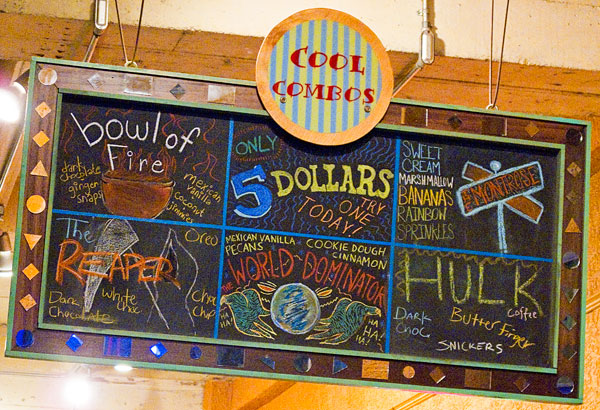 COOL
COMBOS
bowl of
Fire
dark
chocolate
ginger
snaps
mexican
vanilla
coconut
jimmies
ONLY
5 DOLLARS
TRY
ONE
TODAY!
SWEET
CREAM
MARSHMALLOW
BANANAS
RAINBOW
SPRINKLES
THE
MONTROSE
The
REAPER
Oreo
Dark
Chocolate
white
choc
choc
chip
MEXICAN VANILLA
PECANS
COOKIE DOUGH
CINNAMON
THE
WORLD-DOMINATOR
HA
HA
HA!
HA
HA
HA!
HULK
Dark
Choc
Butterfinger
Coffee
SNICKERS